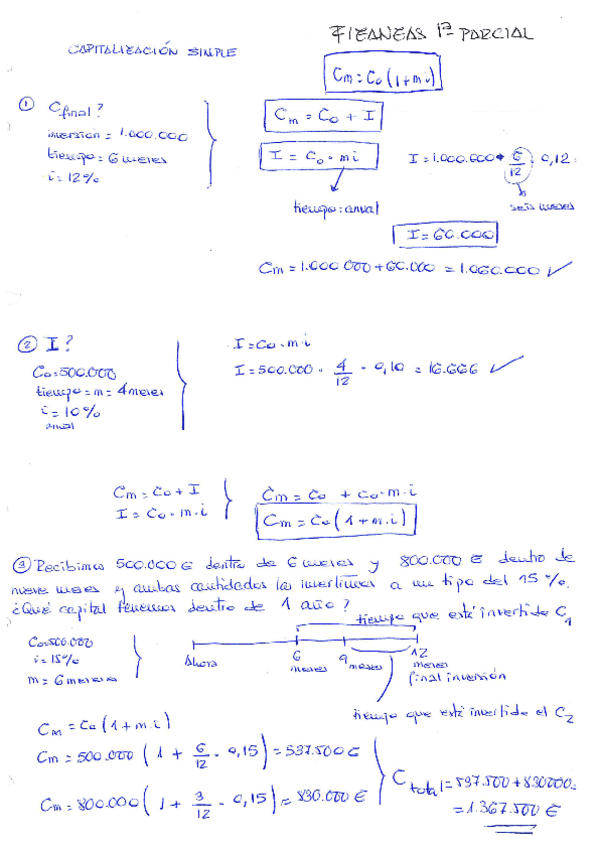 FIZANZAS 1º PARCIAL
CAPITALIZACIÓN SIMPLE
Cm = Co (1+m·i)
① Cfinal?
inversión = 1.000.000
tiempo = 6 meses
i = 12%
Cm = Co + I
I = Co · mi
tiempo: anual
I = 1.000.000 · 6/12 · 0,12 =
seis meses
I = 60.000
Cm = 1.000.000 + 60.000 = 1.060.000 ✓
② I?
Co = 500.000
tiempo = m = 4 meses
i = 10%
anual
I = Co · m · i
I = 500.000 · 4/12 · 0,10 = 16.666 ✓
Cm = Co + I
I = Co · m · i
Cm = Co + Co · m · i
Cm = Co (1 + m · i)
③ Recibimos 500.000 € dentro de 6 meses y 800.000 € dentro de
nueve meses y ambas cantidades las invertimos a un tipo del 15%.
¿Qué capital tenemos dentro de 1 año?
tiempo que está invertido C1
Co = 500.000
i = 15%
m = 6 meses
Ahora
6 meses
9 meses
12 meses
final inversión
tiempo que está invertido el C2
Cm = Co (1 + m · i)
Cm = 500.000 (1 + 6/12 · 0,15) = 537.500 €
Cm = 800.000 (1 + 3/12 · 0,15) = 830.000 €
Ctotal = 537.500 + 830000 =
= 1.367.500 €